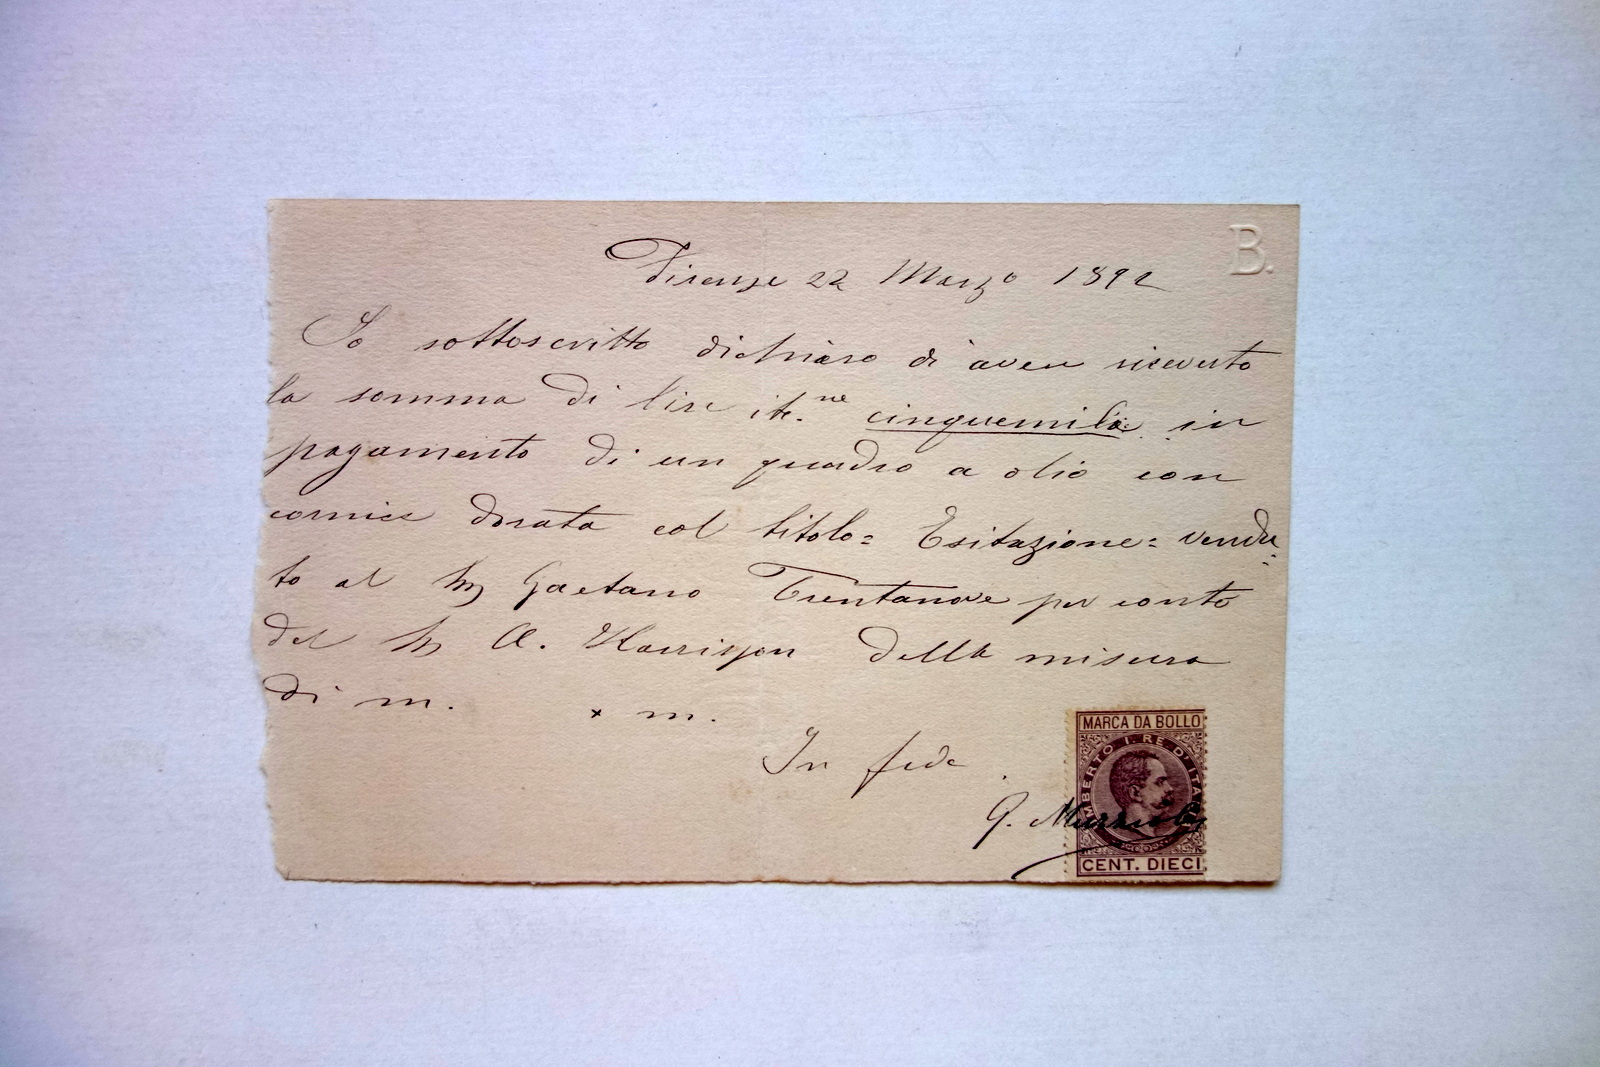 B.
Firenze 22 Marzo 1892
Io sottoscritto dichiaro di aver ricevuto
la somma di lire it.ne cinquemila in
pagamento di un quadro a olio con
cornice dorata col titolo= Esitazione= vendu=
to al Sig Gaetano Trentanove per conto
del Sig A. Harrison della misura
di m. x m.
In fede
G. Muzzioli
MARCA DA BOLLO
UMBERTO I. RE D'ITALIA
CENT. DIECI